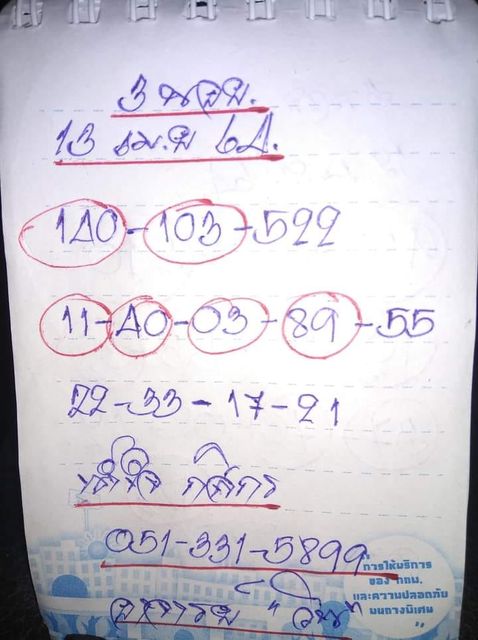 3 นอย.
13 เม.ย 64.
140-103-522
11-40-03-89-55
22-33-17-21
กสิกร
051-331-5899
อาจารย์ "วิน"
การให้บริการ
ของ กทม.
และความปลอดภัย
บนทางพิเศษ